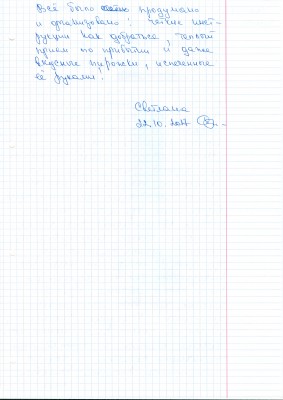 Всё было продумано
и организовано: чёткие инст-
рукции как добраться, теплый
прием по прибытии и даже
вкусные пирожки, испеченные
ее руками.
Светлана
22.10.2017